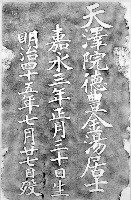 天澤院德豊金湯居士
嘉永三年正月三十日生
明治四十五年七月廿七日歿